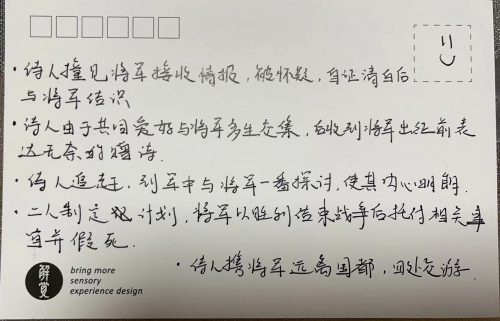 ·诗人撞见将军接收情报,被怀疑,自证清白后
与将军结识
·诗人由于共同爱好与将军多生交集,后收到将军出征前表
达无奈的赠诗.
·诗人追去,到军中与将军一番探讨,使其内心明朗.
·二人制定计划,将军以胜利结束战争后托付相关事
宜并假死.
·诗人携将军远离国都,四处交游.
解觉
bring more
sensory
experience design